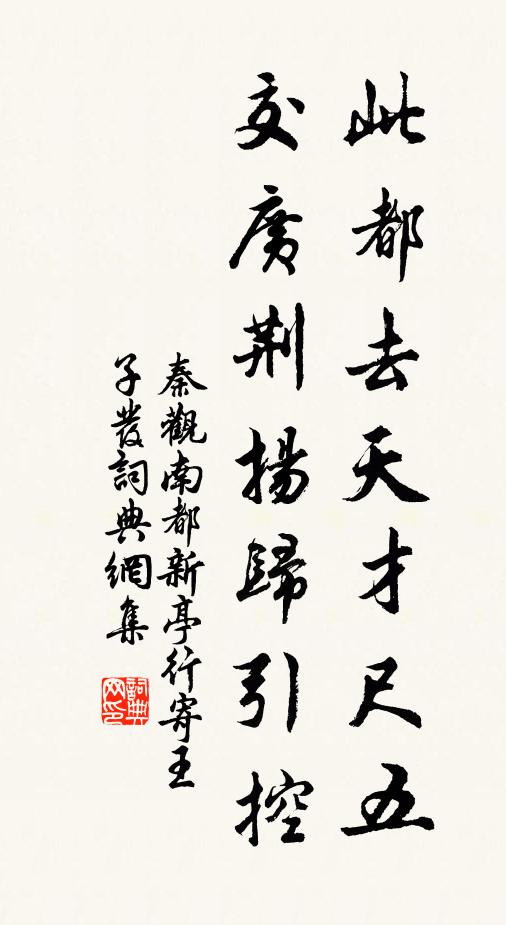 此都去天才尺五
交廣荆揚歸引控
秦觀南都新亭行寄王
子發詞典網集
詞典网印